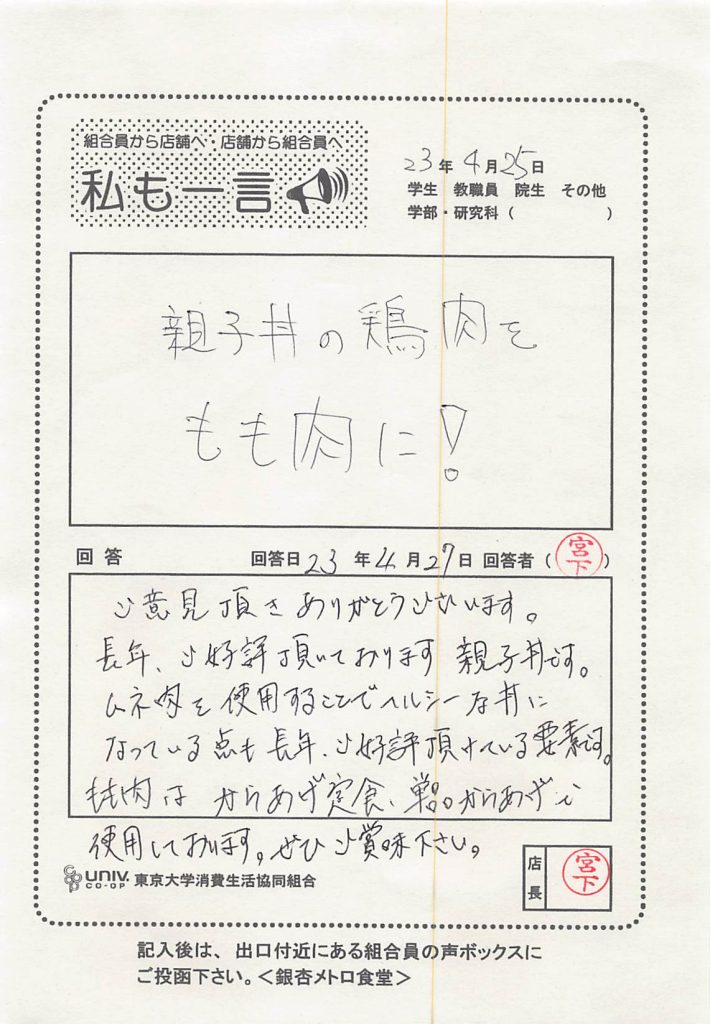 組合員から店舗へ・店舗から組合員へ
私も一言
23年4月25日
学生 教職員 院生 その他
学部・研究科( )
親子丼の鶏肉を
もも肉に!
回答 回答日23年4月27日 回答者(宮下)
ご意見頂きありがとうございます。
長年、ご好評頂いております親子丼です。
ムネ肉を使用することでヘルシーな丼に
なっている点も長年、ご好評頂けている要素です。
もも肉はからあげ定食、単品からあげで
使用しております。ぜひご賞味下さい。
UNIV. CO-OP 東京大学消費生活協同組合
店長 宮下
記入後は、出口付近にある組合員の声ボックスに
ご投函下さい。<銀杏メトロ食堂>